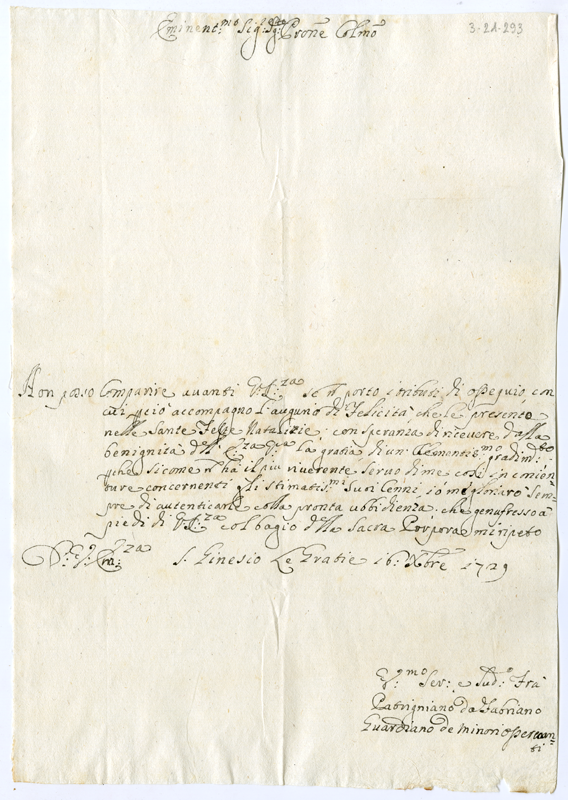 Eminent:mo Sig: Sig: Prõne Colmo
3-21-293
Non posso Comparire avanti V:E:za se ñ porto i tributi di ossequio, con
cui perciò accompagno l'auguno di Felicità che le presento
nelle Sante Feste Natalizie; con speranza di ricevere dalla
benignità dell' E:za V:ra la gratia di un Clementis:mo gradim:to
perche sicome ñ ha il più riverente servo di me così in congion
ture concernenti gli stimatis:mi Suoi Cenni, io mi glorierò Sem
pre di autenticarle colla pronta ubbidienza: che genuflesso a
piedi di V:E:za col bagio della Sacra Porpora mi ripeto
S. Ginesio Le Gratie 16: Xbre 1729
Sev: e Sud:o Fra
Patrigniano da Fabriano
Guardiano de Minori osservan
ti